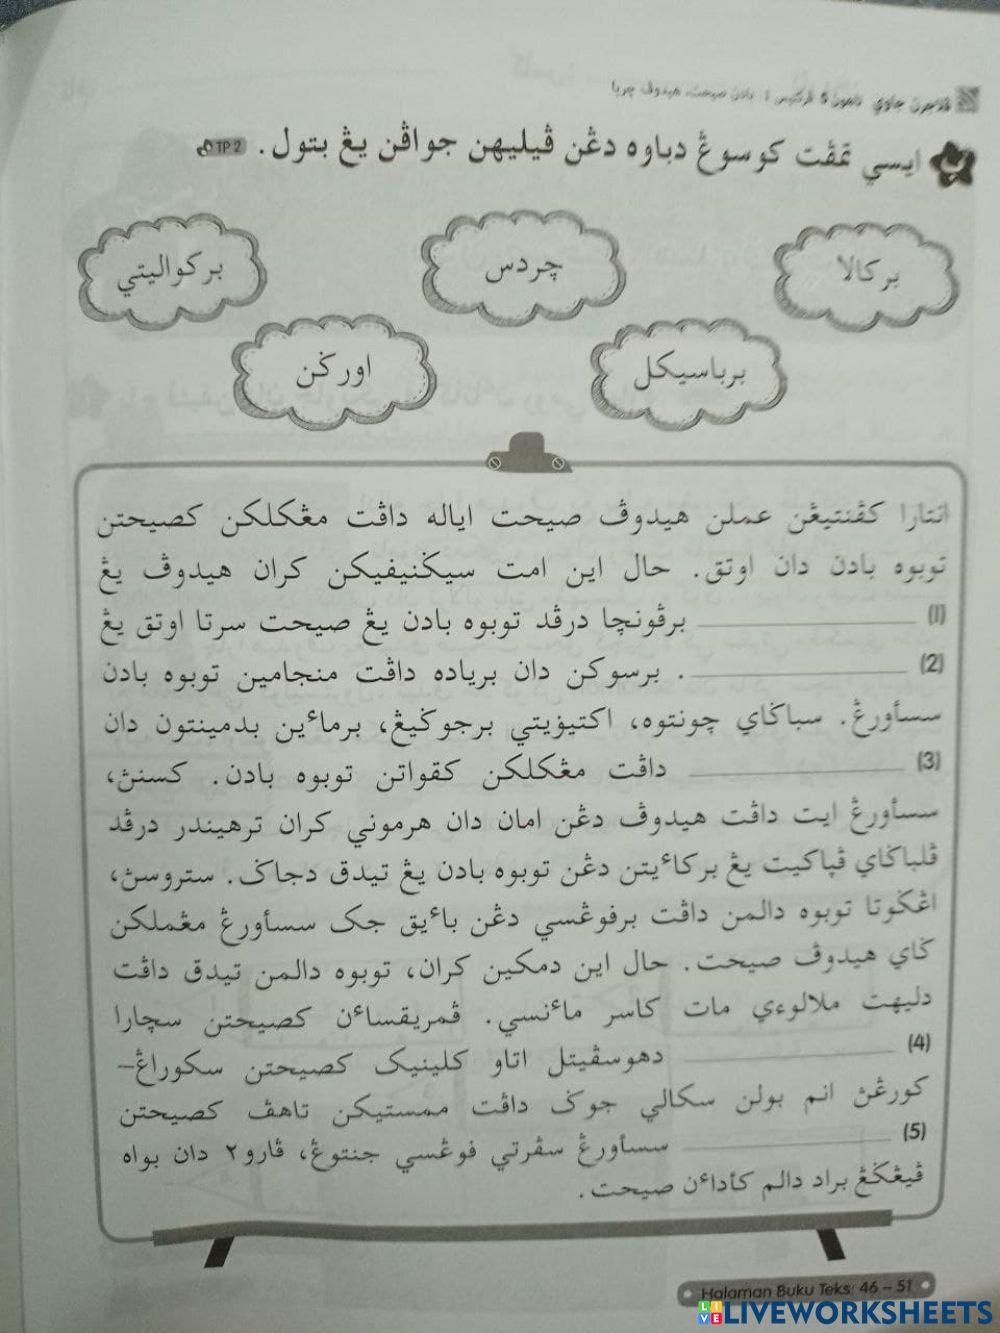 ڤلاجرن جاوي تاهون 5
بادن صيحت، هيدوڤ چريا
ايسي تمڤت كوسوڠ دباوه دڠن ڤيليهن جواڤن يڠ بتول.
TP 2
بركالا
چردس
بركواليتي
برباسيكل
اورݢن
انتارا كڤنتيڠن عملن هيدوڤ صيحت اياله داڤت مڠكلكن كصيحتن
توبوه بادن دان اوتق. حال اين امت سيݢنيفيكن كران هيدوڤ يڠ
(1) ____________ برڤونچا درڤد توبوه بادن يڠ صيحت سرتا اوتق يڠ
(2) ____________. برسوكن دان برياده داڤت منجامين توبوه بادن
سسأورڠ. سباݢاي چونتوه، اكتيۏيتي برجوݢيڠ، برماءين بدمينتون دان
(3) ____________ داڤت مڠكلكن كقواتن توبوه بادن. كسنڽ،
سسأورڠ ايت داڤت هيدوڤ دڠن امان دان هرموني كران ترهيندر درڤد
ڤلباݢاي ڤڽاكيت يڠ بركاءيتن دڠن توبوه بادن يڠ تيدق دجاݢ. ستروسڽ،
اڠݢوتا توبوه دالمن داڤت برفوڠسي دڠن باءيق جك سسأورڠ مڠملكن
ݢاي هيدوڤ صيحت. حال اين دمكين كران، توبوه دالمن تيدق داڤت
دليهت ملالوءي مات كاسر ماءنسي. ڤمريقساءن كصيحتن سچارا
(4) ____________ دهوسڤيتل اتاو كلينيک كصيحتن سكوراڠ-
كورڠڽ انم بولن سكالي جوݢ داڤت ممستيكن تاهڤ كصيحتن
(5) ____________ سسأورڠ سڤرتي فوڠسي جنتوڠ، ڤارو٢ دان بواه
ڤيڠݢڠ براد دالم كأداءن صيحت.
Halaman Buku Teks: 46 – 51
LIVEWORKSHEETS